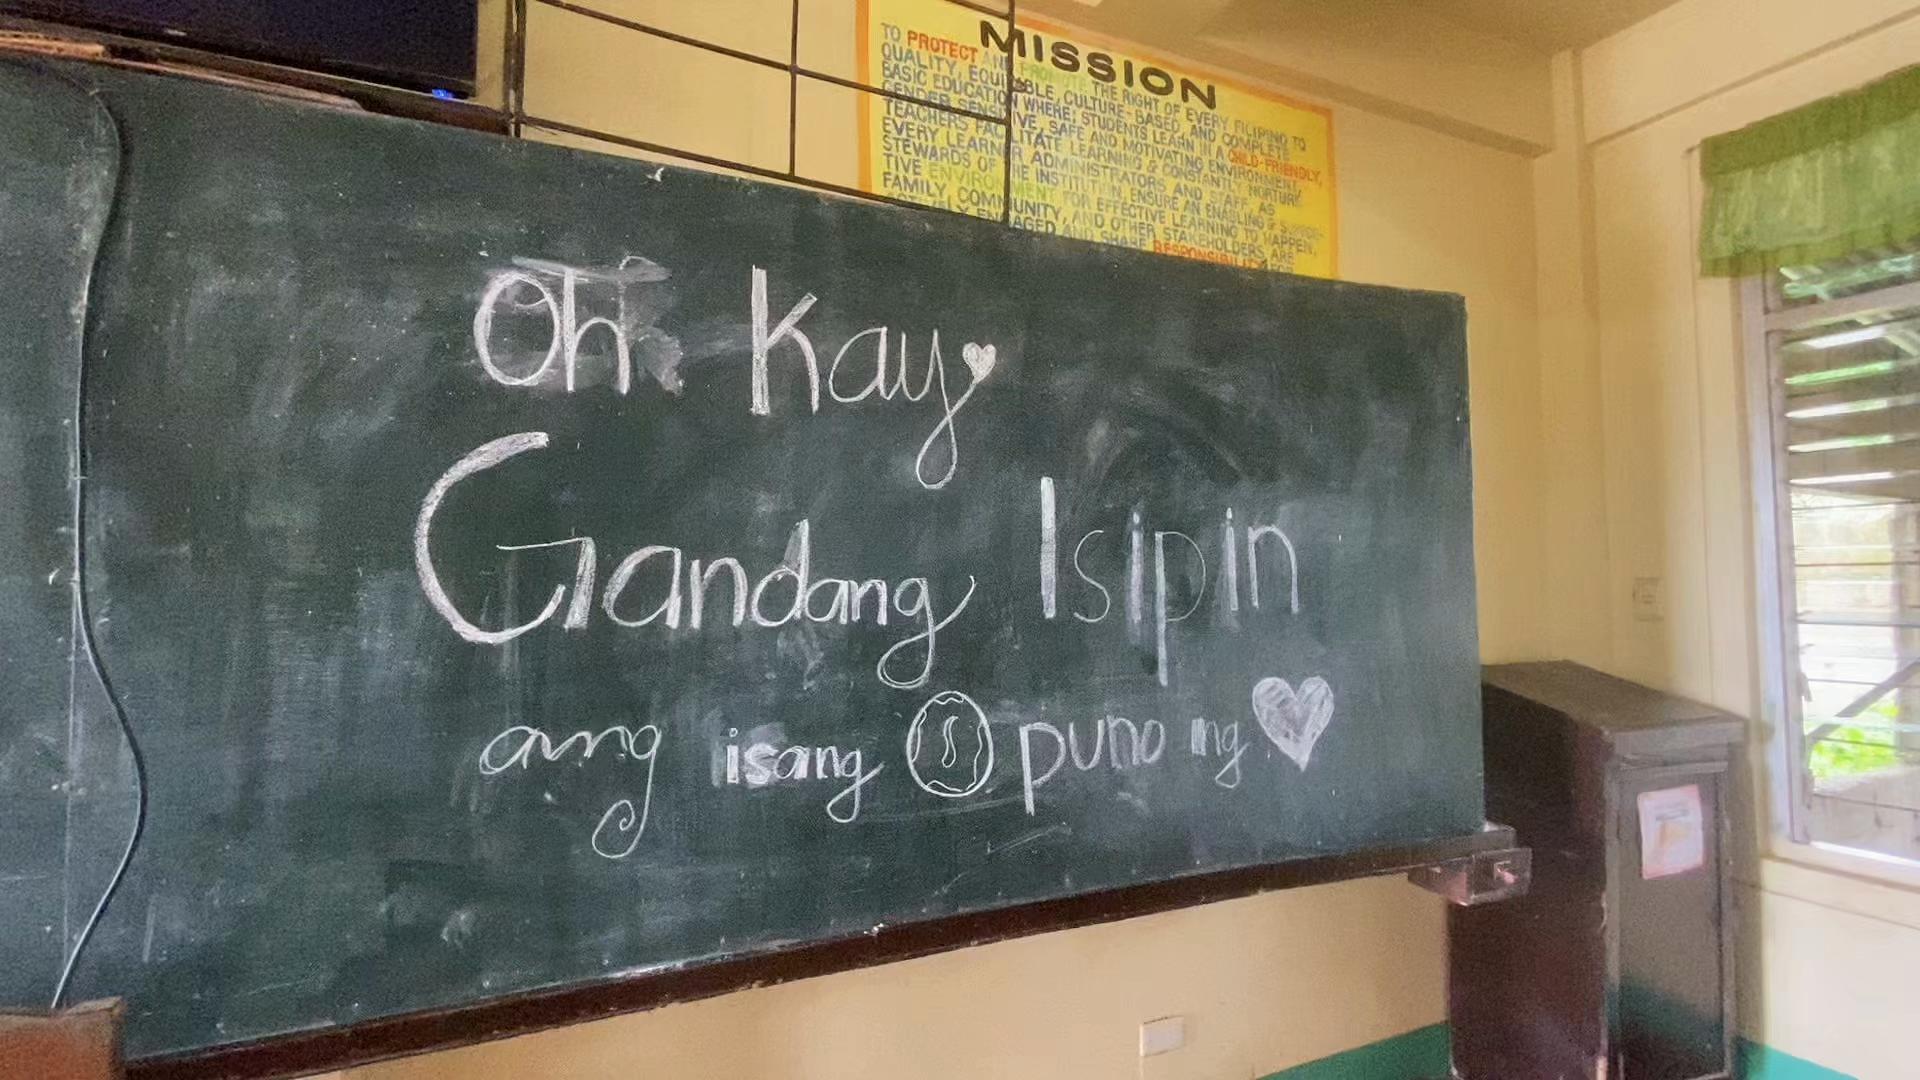 MISSION
TO PROTECT AND PROMOTE THE RIGHT OF EVERY FILIPINO TO
QUALITY, EQUITABLE, CULTURE-BASED, AND COMPLETE
BASIC EDUCATION WHERE: STUDENTS LEARN IN A CHILD-FRIENDLY,
GENDER SENSITIVE, SAFE AND MOTIVATING ENVIRONMENT,
TEACHERS FACILITATE LEARNING & CONSTANTLY NURTURE
EVERY LEARNER ADMINISTRATORS AND STAFF, AS
STEWARDS OF THE INSTITUTION, ENSURE AN ENABLING & SUPPOR-
TIVE ENVIRONMENT FOR EFFECTIVE LEARNING TO HAPPEN,
FAMILY, COMMUNITY, AND OTHER STAKEHOLDERS ARE
ENGAGED AND SHARE RESPONSIBILITY FOR
Oh Kay
Gandang Isipin
ang isang puno ng